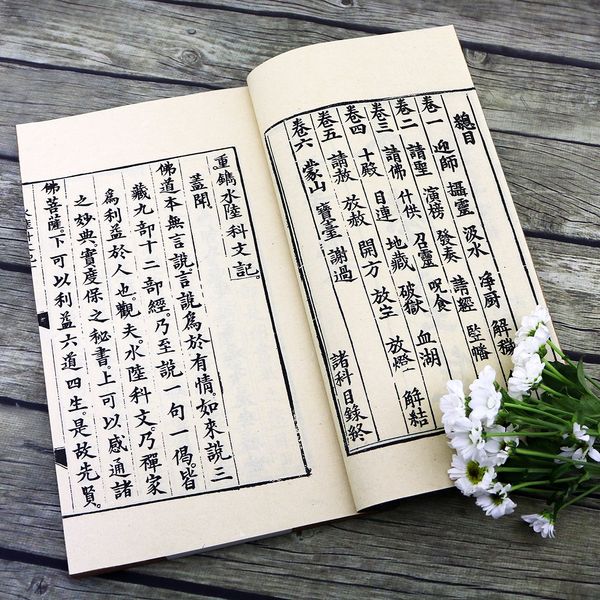 總目
卷一 迎師 攝靈 汲水 淨厨 解穢
請聖 演榜 發奏 請經 竪幡
卷二 請佛 什供 召靈 呪食
卷三 十殿 目連 地藏 破獄 血湖
卷四 請赦 放赦 開方 放生 放燈 解結
卷五
卷六 蒙山 寶臺 謝過 諸科目錄終
重鐫水陸科文記。
蓋聞
佛道本無言説言説爲於有情。如來説三
藏九部十二部經。乃至説一句一偈。皆
爲利益於人也。觀夫。水陸科文。乃禪家
之妙典。實度保之秘書。上可以感通諸
佛菩薩。下可以利益六道四生。是故先賢。